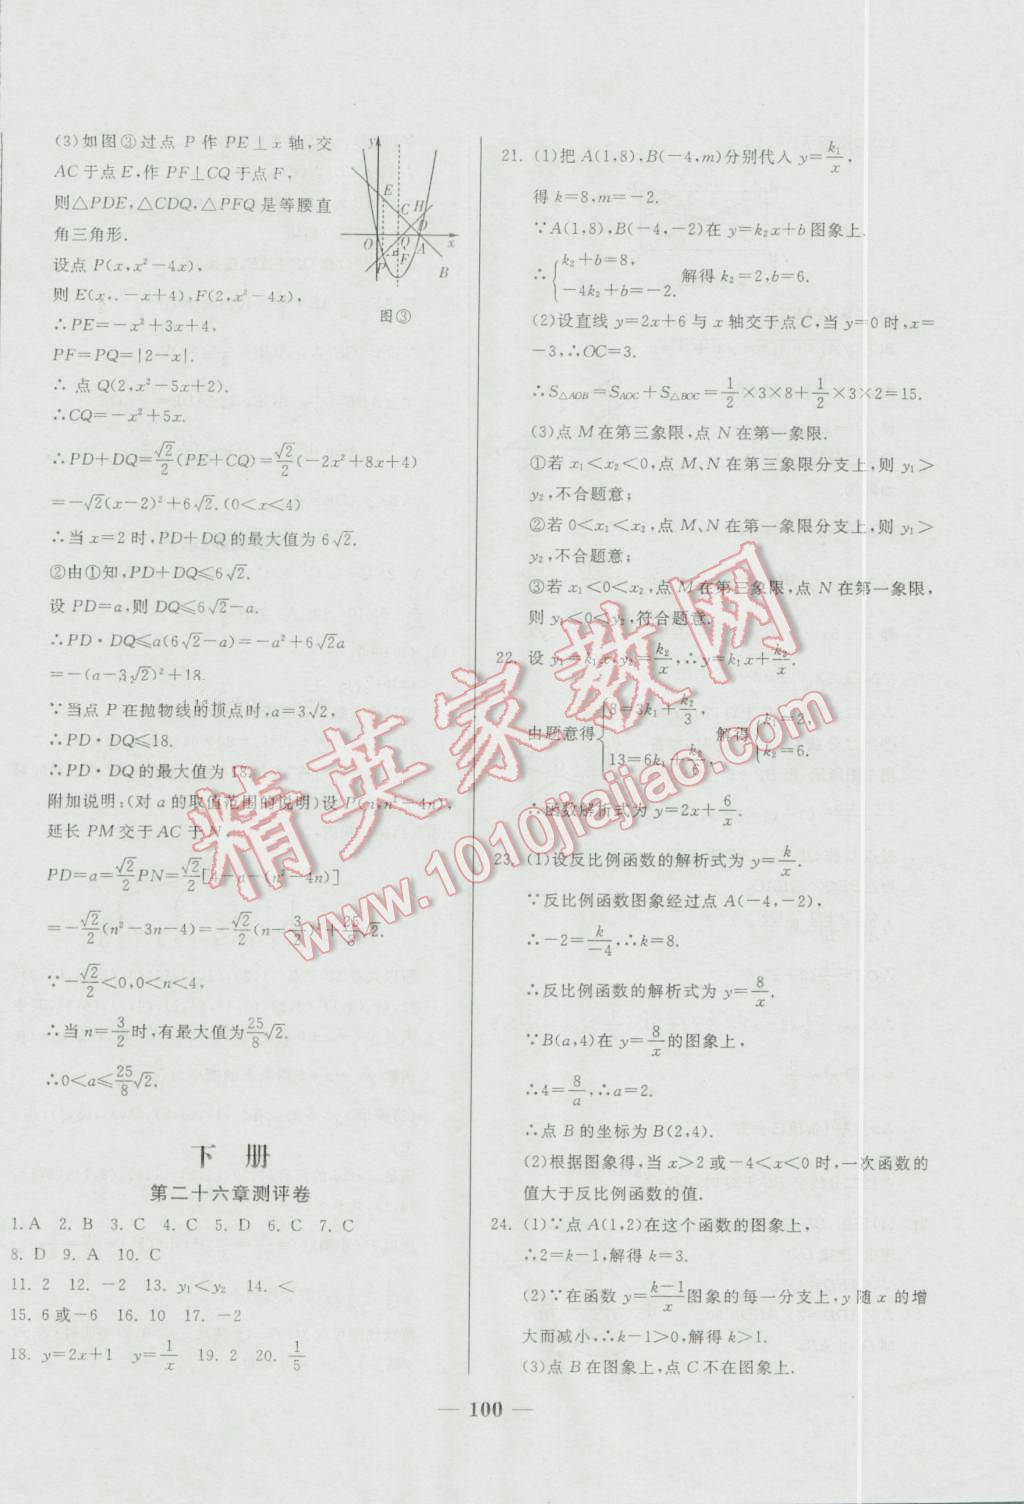 (3)如图③过点 P 作 PE⊥x 轴,交
AC 于点 E,作 PF⊥CQ 于点 F,
则△PDE,△CDQ,△PFQ 是等腰直
角三角形.
设点 P(x,x²-4x),
则 E(x,-x+4),F(2,x²-4x),
∴PE=-x²+3x+4,
PF=PQ=|2-x|.
∴ 点 Q(2,x²-5x+2).
∴CQ=-x²+5x.
∴PD+DQ=√2/2(PE+CQ)=√2/2(-2x²+8x+4)
=-√2(x-2)²+6√2.(0<x<4)
∴当 x=2 时,PD+DQ 的最大值为 6√2.
②由①知,PD+DQ≤6√2.
设 PD=a,则 DQ≤6√2-a.
∴PD·DQ≤a(6√2-a)=-a²+6√2a
=-(a-3√2)²+18.
∵当点 P 在抛物线的顶点时,a=3√2,
∴PD·DQ≤18.
∴PD·DQ 的最大值为 18.
附加说明:(对 a 的取值范围的说明)设 P(n,n²-4n),
延长 PM 交于 AC 于 N,
PD=a=√2/2PN=√2/2[4-n-(n²-4n)]
=-√2/2(n²-3n-4)=-√2/2(n-3/2)²+25/8√2.
∵-√2/2<0,0<n<4,
∴当 n=3/2时,有最大值为25/8√2.
∴0<a≤25/8√2.
y
E
C
H
D
O
Q
A
x
P
F
B
图③
下 册
第二十六章测评卷
1. A 2. B 3. C 4. C 5. D 6. C 7. C
8. D 9. A 10. C
11. 2 12. -2 13. y₁<y₂ 14. <
15. 6 或-6 16. 10 17. -2
18. y=2x+1 y=1/x 19. 2 20. 1/5
21. (1)把 A(1,8),B(-4,m)分别代入 y=k₁/x,
得 k=8,m=-2.
∵A(1,8),B(-4,-2)在 y=k₂x+b图象上.
∴{k₂+b=8, -4k₂+b=-2. 解得 k₂=2,b=6.
(2)设直线 y=2x+6 与 x 轴交于点 C,当 y=0 时,x=
-3,∴OC=3.
∴S△AOB=SAOC+S△BOC=1/2×3×8+1/2×3×2=15.
(3)点 M 在第三象限,点 N 在第一象限.
①若 x₁<x₂<0,点 M、N 在第三象限分支上,则 y₁>
y₂,不合题意;
②若 0<x₁<x₂,点 M、N 在第一象限分支上,则 y₁>
y₂,不合题意;
③若 x₁<0<x₂,点 M 在第三象限,点 N 在第一象限,
则 y₁<0<y₂,符合题意.
22. 设 y₁=k₁x,y₂=k₂/x,∴y=k₁x+k₂/x.
由题意得{8=3k₁+k₂/3, 13=6k₁+k₂/6. 解得{k₁=2, k₂=6.
∴函数解析式为 y=2x+6/x.
23. (1)设反比例函数的解析式为 y=k/x.
∵反比例函数图象经过点 A(-4,-2),
∴-2=k/-4,∴k=8.
∴反比例函数的解析式为 y=8/x.
∵B(a,4)在 y=8/x的图象上,
∴4=8/a,∴a=2.
∴点 B 的坐标为 B(2,4).
(2)根据图象得,当 x>2 或-4<x<0 时,一次函数的
值大于反比例函数的值.
24. (1)∵点 A(1,2)在这个函数的图象上,
∴2=k-1,解得 k=3.
(2)∵在函数 y=k-1/x图象的每一分支上,y 随 x 的增
大而减小,∴k-1>0,解得 k>1.
(3)点 B 在图象上,点 C 不在图象上.
精英家教网
www.1010jiajiao.com
— 100 —